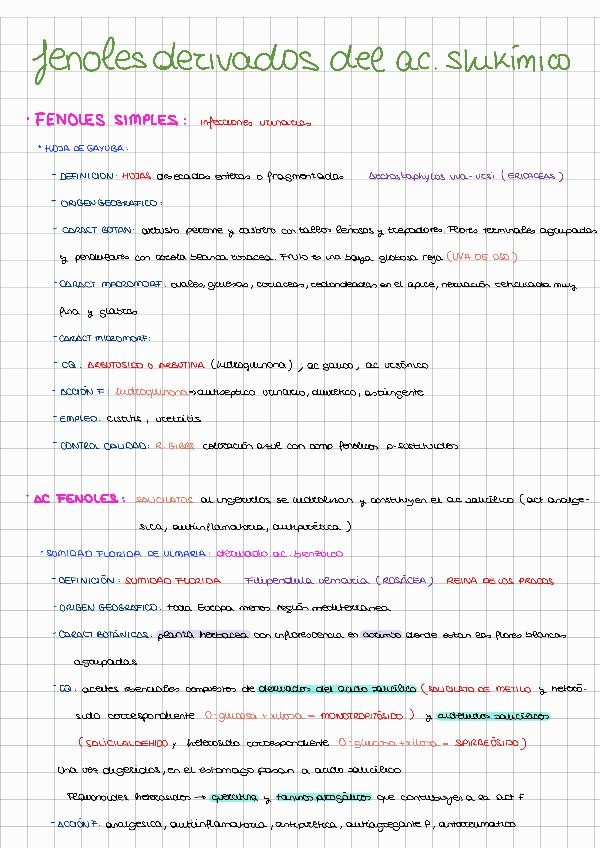 fenoles derivados del ac. shikímico
· FENOLES SIMPLES: infecciones urinarias
· HOJA DE GAYUBA:
- DEFINICION: HOJAS desecadas enteras o fragmentadas Arctostaphylos uva-ursi (ERICACEAS)
- ORIGEN GEOGRAFICO:
- CARACT BOTAN: arbusto perenne y rastrero con tallos leñosos y trepadores. Flores terminales agrupadas
y pendulares con corola blanca rosacea. Fruto es una baya globosa roja (UVA DE OSO)
- CARACT MACROMORF: ovales, gruesas, coriaceas, redondeadas en el apice, nerviación reticulada muy
fina y glabras
- CARACT MICROMORF:
- CQ: ARBUTOSIDO O ARBUTINA (hidroquinona), ac galico, ac ursónico
- ACCIÓN F: hidroquinona → antiseptico urinario, diuretico, astringente
- EMPLEO: cistitis, uretritis
- CONTROL CALIDAD: R. GIBBS coloración azul con comp fenolicos p-sustituidos
· AC FENOLES: SALICILATOS al ingerirlos se hidrolizan y constituyen el ac salicílico (act analge-
sica, antiinflamatoria, antipirética)
· SUMIDAD FLORIDA DE ULMARIA: derivado ac. benzoico
- DEFINICIÓN: SUMIDAD FLORIDA Filipendula ulmaria (ROSÁCEA) REINA DE LOS PRADOS
- ORIGEN GEOGRAFICO: toda Europa menos región mediterranea
- CARACT BOTÁNICAS: planta herbacea con inflorescencia en corimbo donde estan las flores blancas
agrupadas
- CQ: aceites esenciales compuestos de derivados del acido salicílico (SALICILATO DE METILO y heteró-
sido correspondiente O-glucosa + xilosa = MONOTROPITÓSIDO) y aldehidos salicílicos
(SALICILALDEHIDO y heterosido correspondiente O-glucosa + xilosa = SPIREÓSIDO)
Una vez digeridos, en el estomago pasan a acido salicílico
Flavonoides heterosidos → quercetina y taninos pirogálicos que contribuyen a la act F
- ACCIÓN F: analgesica, antiinflamatoria, antipirética, antiagregante P, antirreumatico